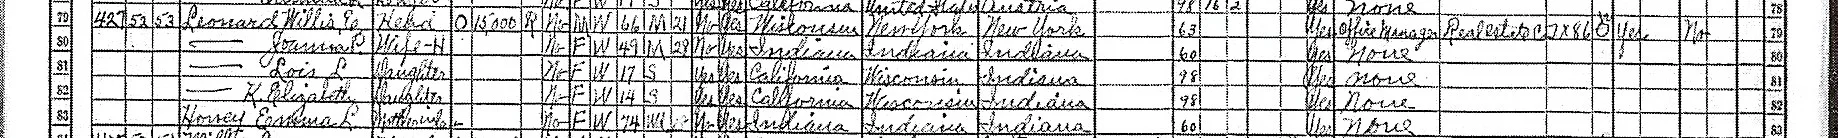 79 427 52 53 Leonard Willis E. Head O 15,000 R No M W 66 M 21 No Yes Wisconsin New York New York 63 Yes Office Manager Real estate Yes No 79
80 — Joanna P. Wife-H No F W 49 M 28 No Yes Indiana Indiana Indiana 60 Yes None 80
81 — Lois L. Daughter No F W 17 S Yes Yes California Wisconsin Indiana 98 Yes none 81
82 — K. Elizabeth Daughter No F W 14 S Yes Yes California Wisconsin Indiana 98 Yes None 82
83 Emma L. No F W 74 Yes Indiana Indiana Indiana 60 Yes None 83